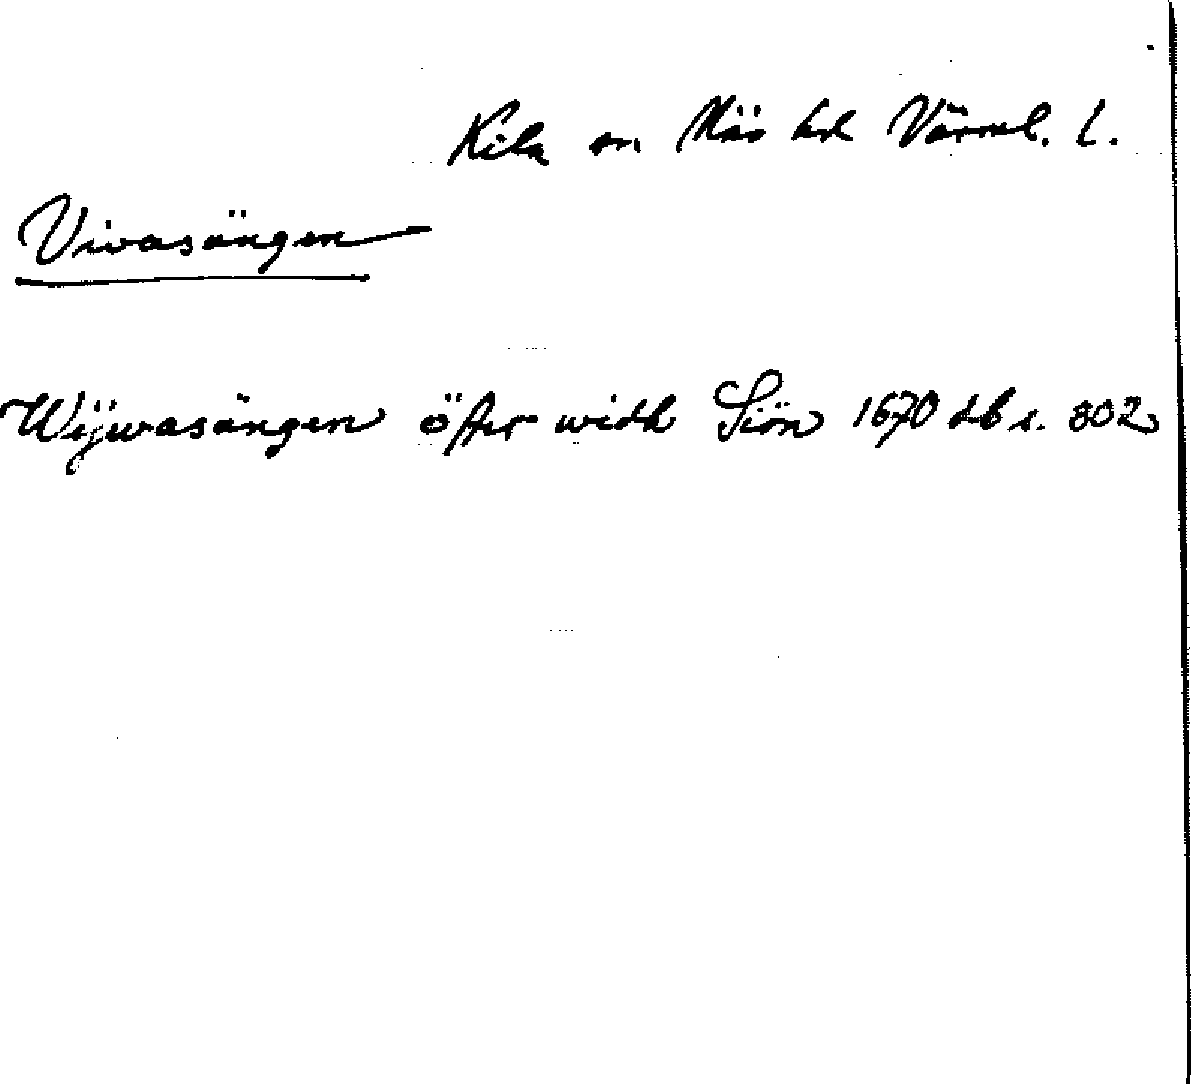 Kila sn. Näs hd Värml. l.
Vivasängen
Wijwasängen öfter widh Siön 1670 db s. 802